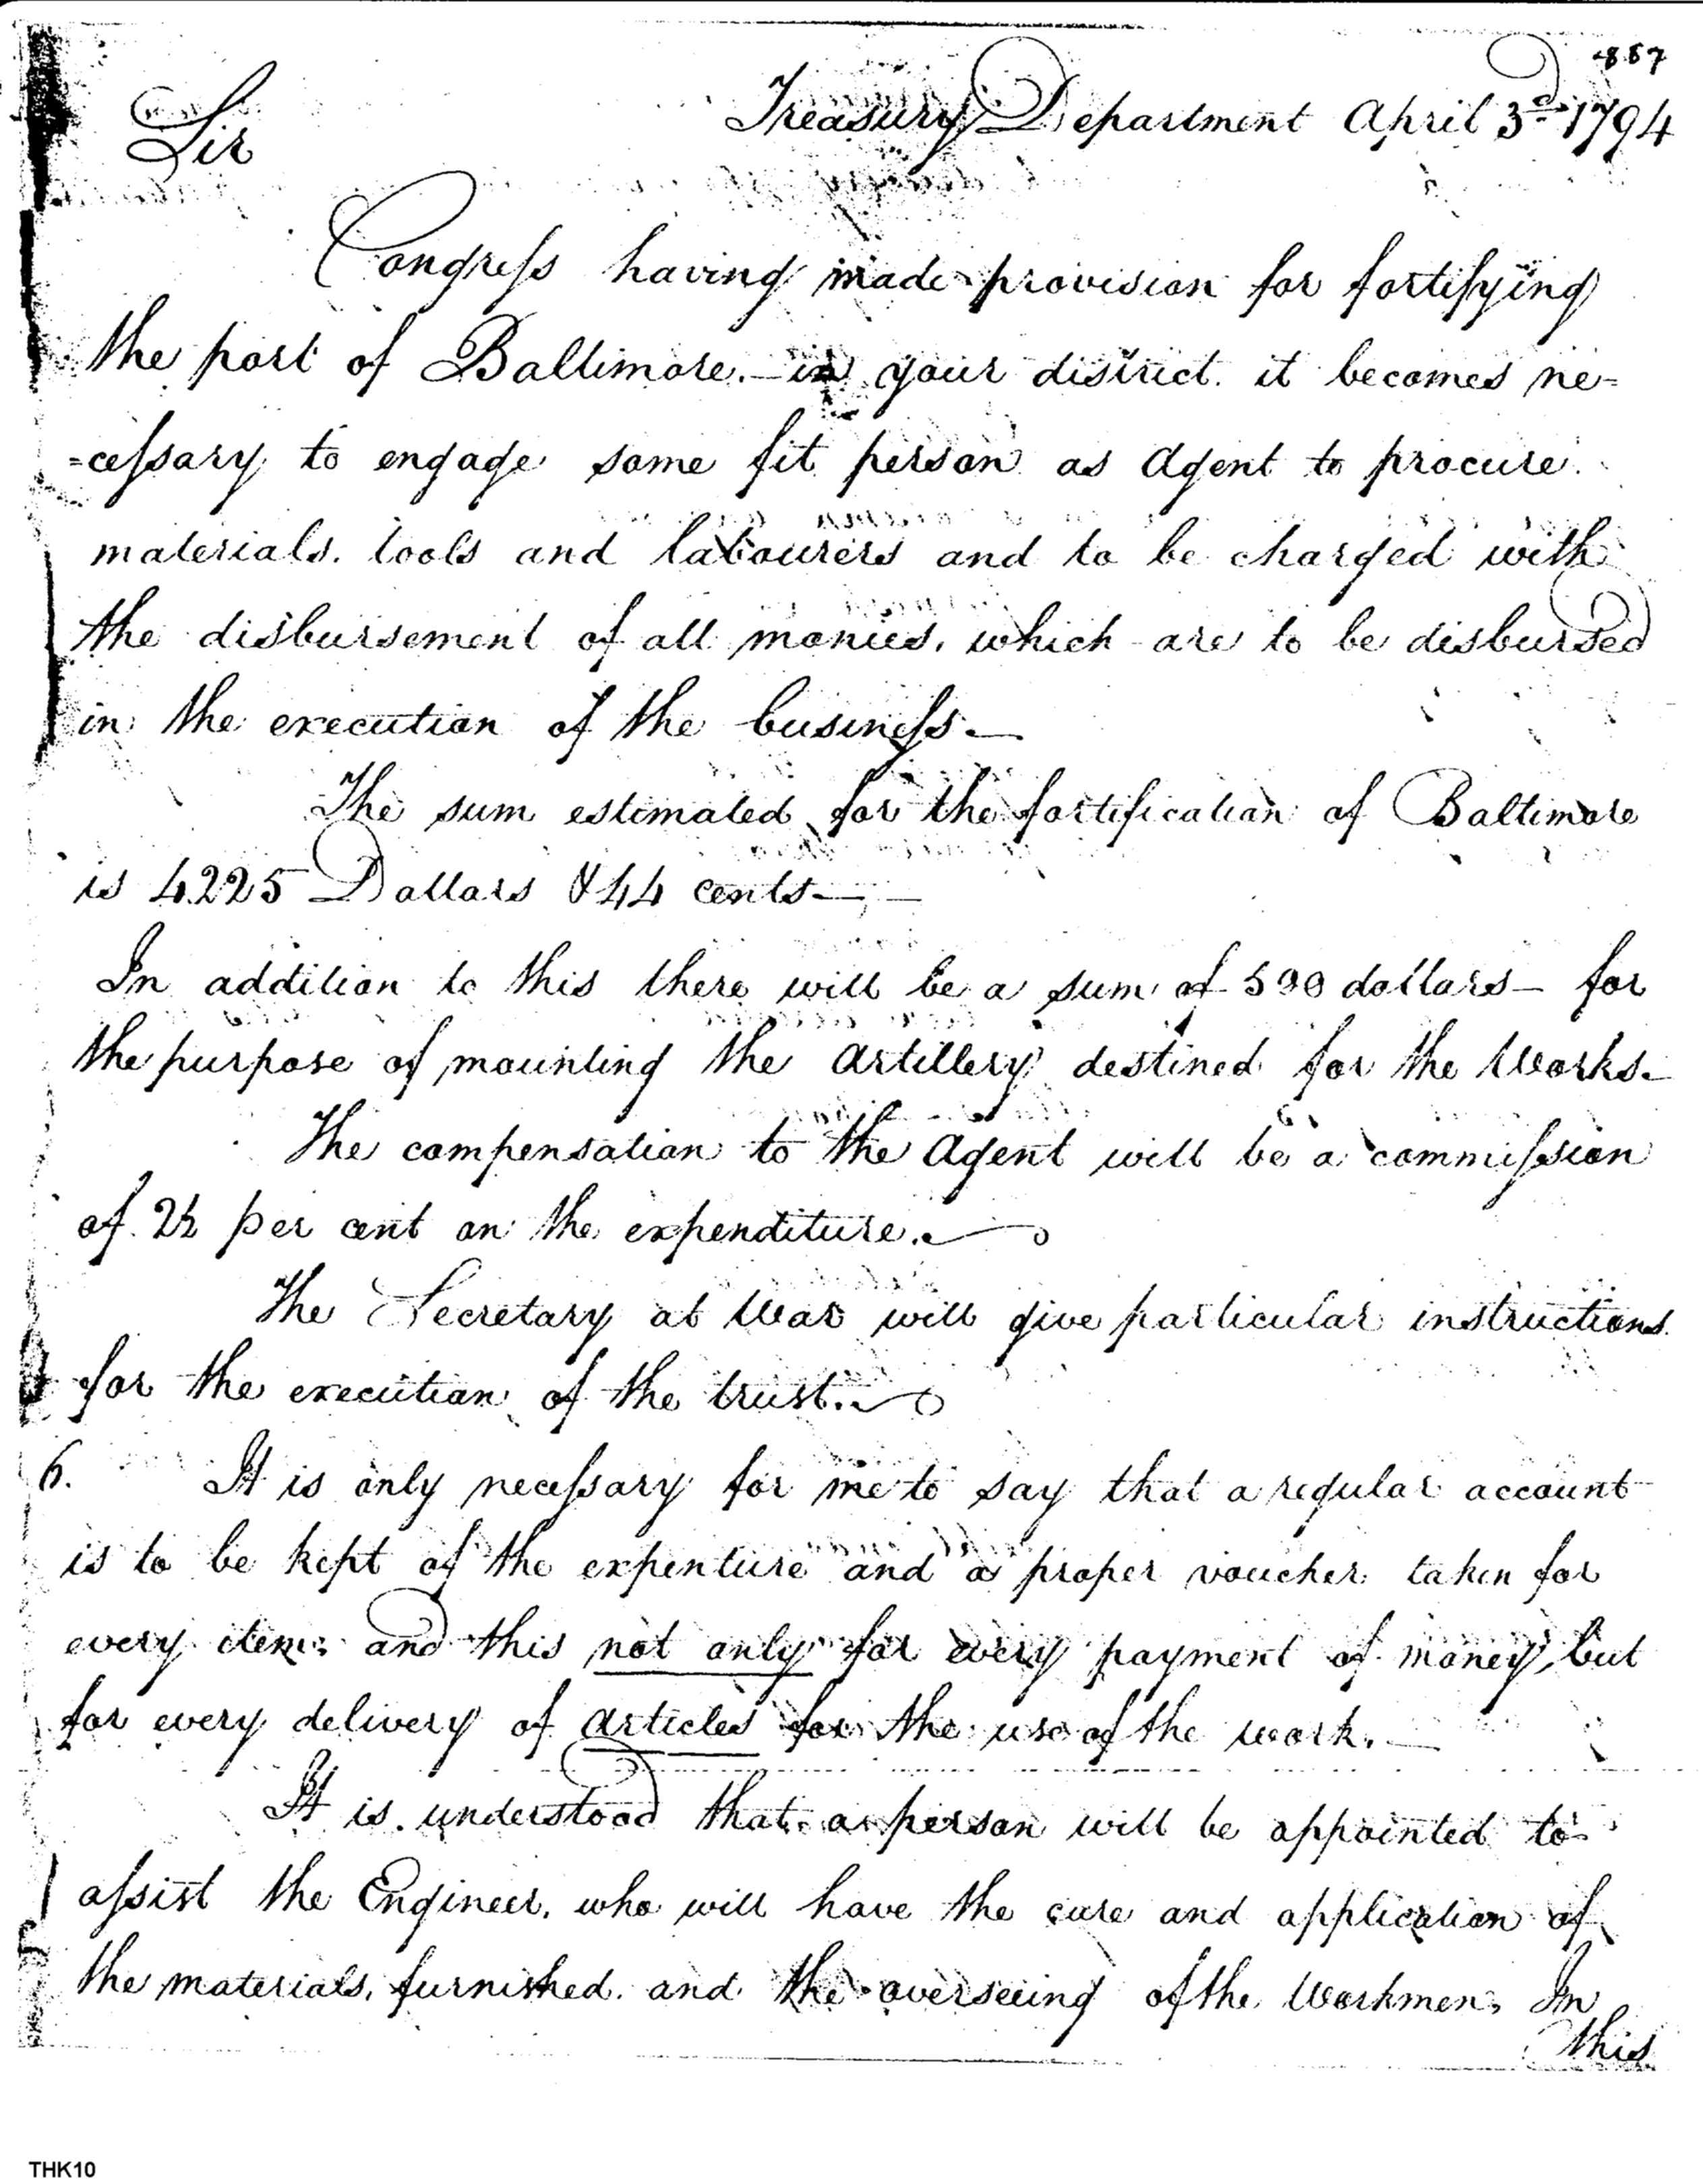 887
Treasury Department April 3d 1794
Sir
Congress having made provision for fortifying
the port of Baltimore. in your district. it becomes ne=
=cessary to engage some fit person as Agent to procure.
materials. tools and labourers and to be charged with
the disbursement of all monies, which are to be disbursed
in the execution of the business.—
The sum estimated for the fortification of Baltimore
is 4225 Dollars & 44 cents—
In addition to this there will be a sum of 500 dollars— for
the purpose of mounting the artillery destined for the Works.—
The compensation to the Agent will be a commission
of 2½ per cent on the expenditure.
The Secretary at War will give particular instructions
for the execution of the trust.
6. It is only necessary for me to say that a regular account
is to be kept of the expenture and a proper voucher taken for
every item; and this not only for every payment of money, but
for every delivery of articles for the use of the work.—
It is understood that a person will be appointed to
assist the Engineer, who will have the care and application of
the materials, furnished and the overseeing of the Workmen, In
this
THK10